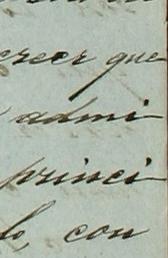 creer que
admi
princi
lo, con